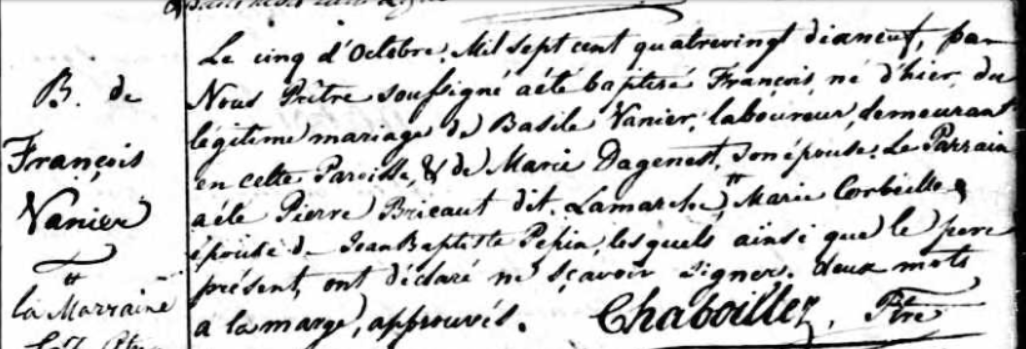 B. de
François
Vanier
#
la Marraine
Le cinq d'Octobre, Mil sept cent quatrevingt dixneuf, par
Nous Prêtre soussigné a été baptisé François, né d'hier, du
légitime mariage de Basile Vanier, laboureur, demeurant
en cette Paroisse, & de Marie Dagenest, son épouse. Le Parrain
a été Pierre Bricaut dit Lamarche, # Marie Corbeille
épouse de Jean Baptiste Pepin, lesquels ainsi que le pere
présent, ont déclaré ne sçavoir signer. deux mots
a la marge, approuvés. Chaboillez, Ptre